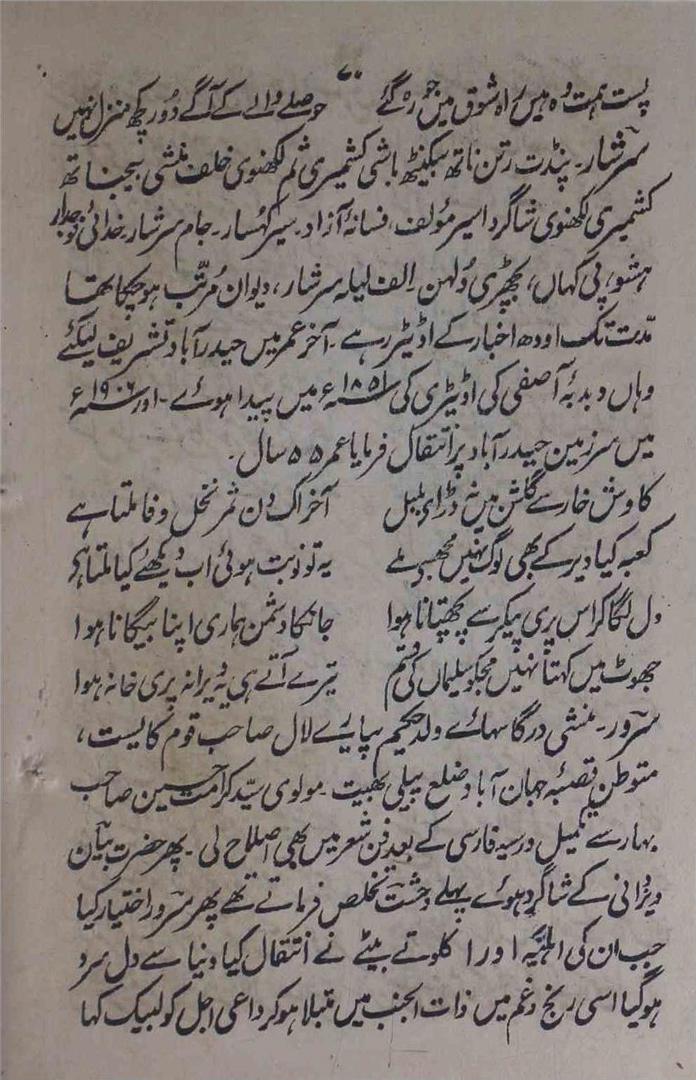 ۷۰
پست ہمت وہ ہیں راہ شوق میں جو رہ گئے حوصلے والے کے آگے دور کچھ منزل نہیں
سرشار۔ پنڈت رتن ناتھ سیکنٹھ باشی کشمیری ثم لکھنوی خلف منشی بیجناتھ
کشمیری لکھنوی شاگرد اسیر مؤلف، فسانۂ آزاد۔ سیر کہسار۔ جام سرشار۔ خدائی فوجدار
ہشو، پی کہاں، بچھڑی دلہن۔ الف لیلہ سرشار، دیوان مُرتّب ہو چکا تھا
مدّت تک اودھ اخبار کے اڈیٹر رہے۔ آخر عمر میں حیدرآباد تشریف لیگئے
وہاں دبدبۂ آصفی کی اڈیٹری کی ۱۸۵۱ء میں پیدا ہوئے۔ اور ۱۹۰۶ء
میں سرزمین حیدرآباد پر انتقال فرمایا عمر ۵۵ سال۔
کاوش خار سے گلشن میں نہ ڈر اے بلبل آخر اک دن ثمر نخل وفا ملتا ہے
کعبہ کیا دیر کے بھی لوگ نہیں مجھسے ملے یہ تو نوبت ہوئی اب دیکھئے کیا ملتا ہے
دل لگا کر اس پری پیکر سے پچھتانا ہوا جانکا دشمن ہماری اپنا بیگانا ہوا
جھوٹ میں کہتا نہیں مجکو سلیماں کی قسم تیرے آتے ہی یہ ویرانہ پری خانہ ہوا
سرور۔ منشی درگا سہاے ولد حکیم پیارے لال صاحب قوم کایست،
متوطن قصبہ جہان آباد ضلع پیلی بھیت۔ مولوی سیّد کرامت حسین صاحب
بہار سے تکمیل درسیہ فارسی کے بعد فن شعر میں بھی اصلاح لی۔ پھر حضرت بیان
یزدانی کے شاگرد ہوے پہلے وحشت تخلص فرماتے تھے پھر سرور اختیار کیا
جب ان کی اہلیہ اور اکلوتے بیٹے نے انتقال کیا دنیا سے دل سرد
ہو گیا اسی رنج و غم میں ذات الجنب میں مبتلا ہو کر داعی اجل کو لبیک کہا